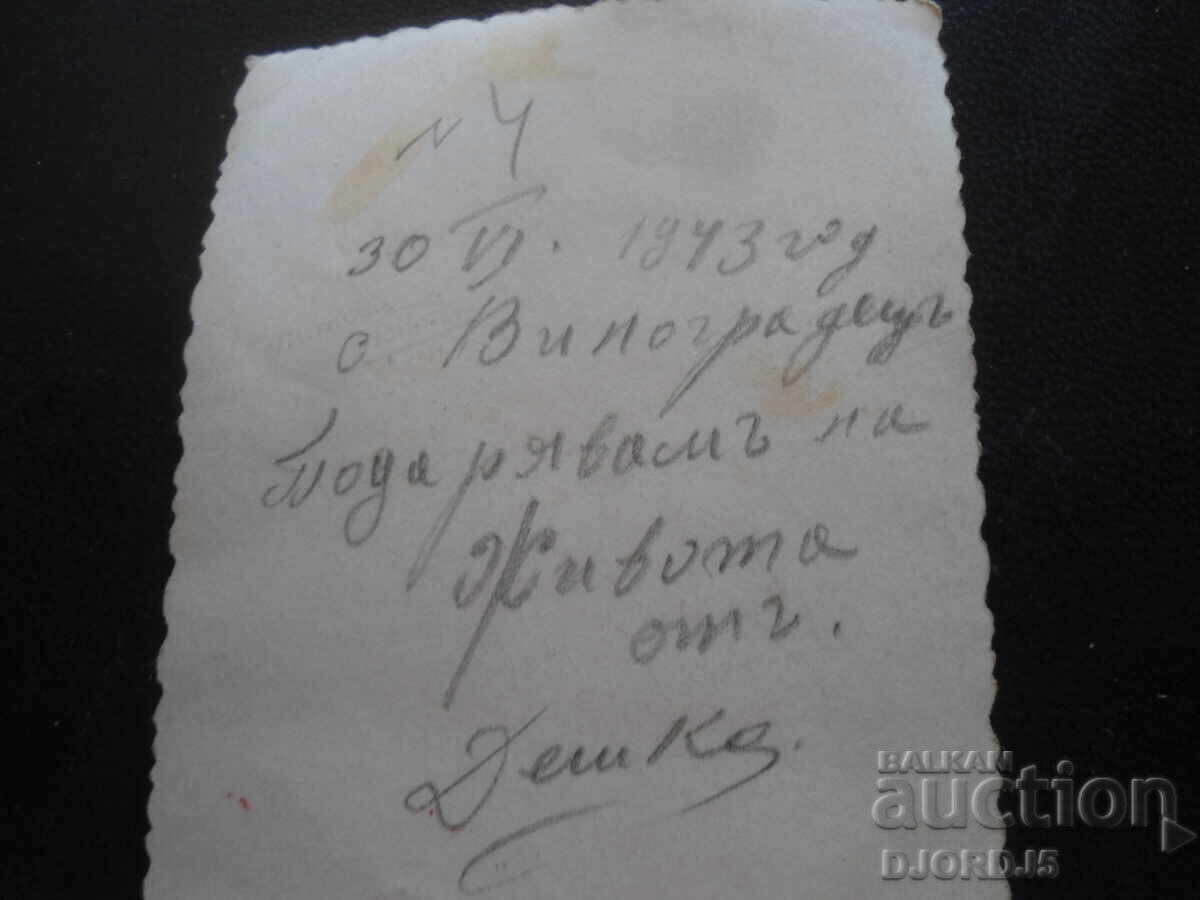 № 4
30 VI. 1943 год
с. Виноградецъ
Подарявамъ на
Живота
отъ.
Дешка.
BALKAN
auction
DJORDJ5